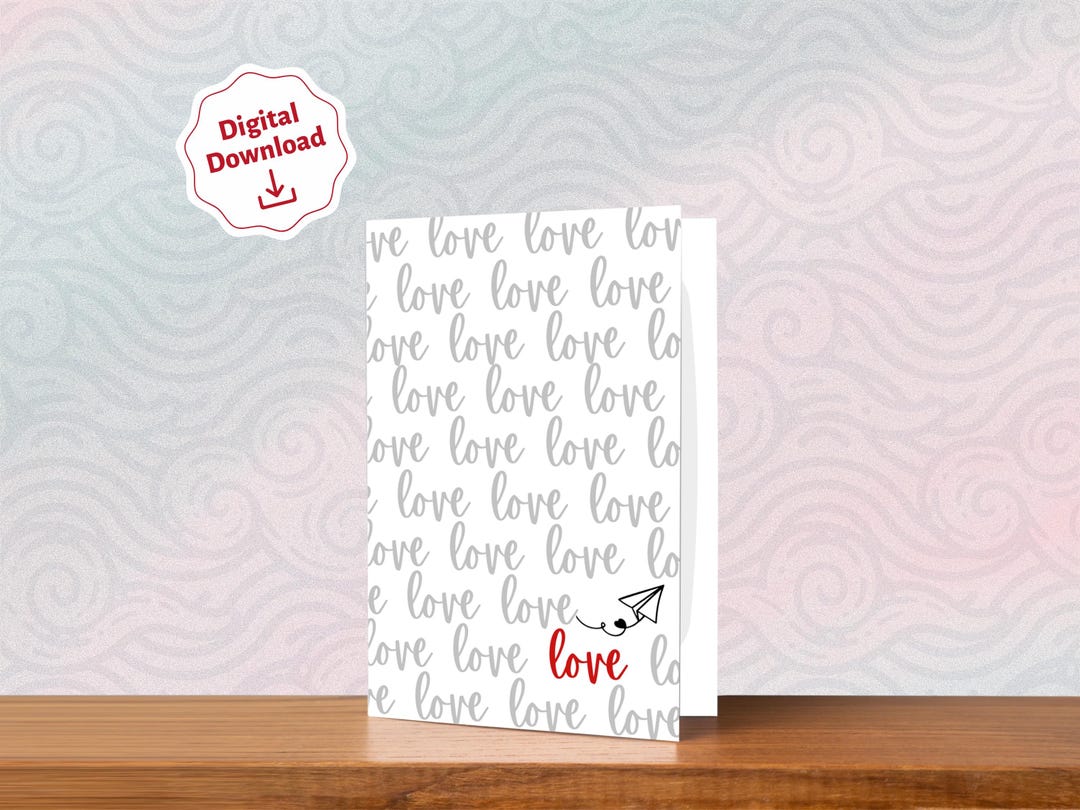 Digital
Download
ve love love lov
e love love love
love love love lo
love love love
love love love lo
e love love love
love love love lo
e love love
love love love lo
ve love love love